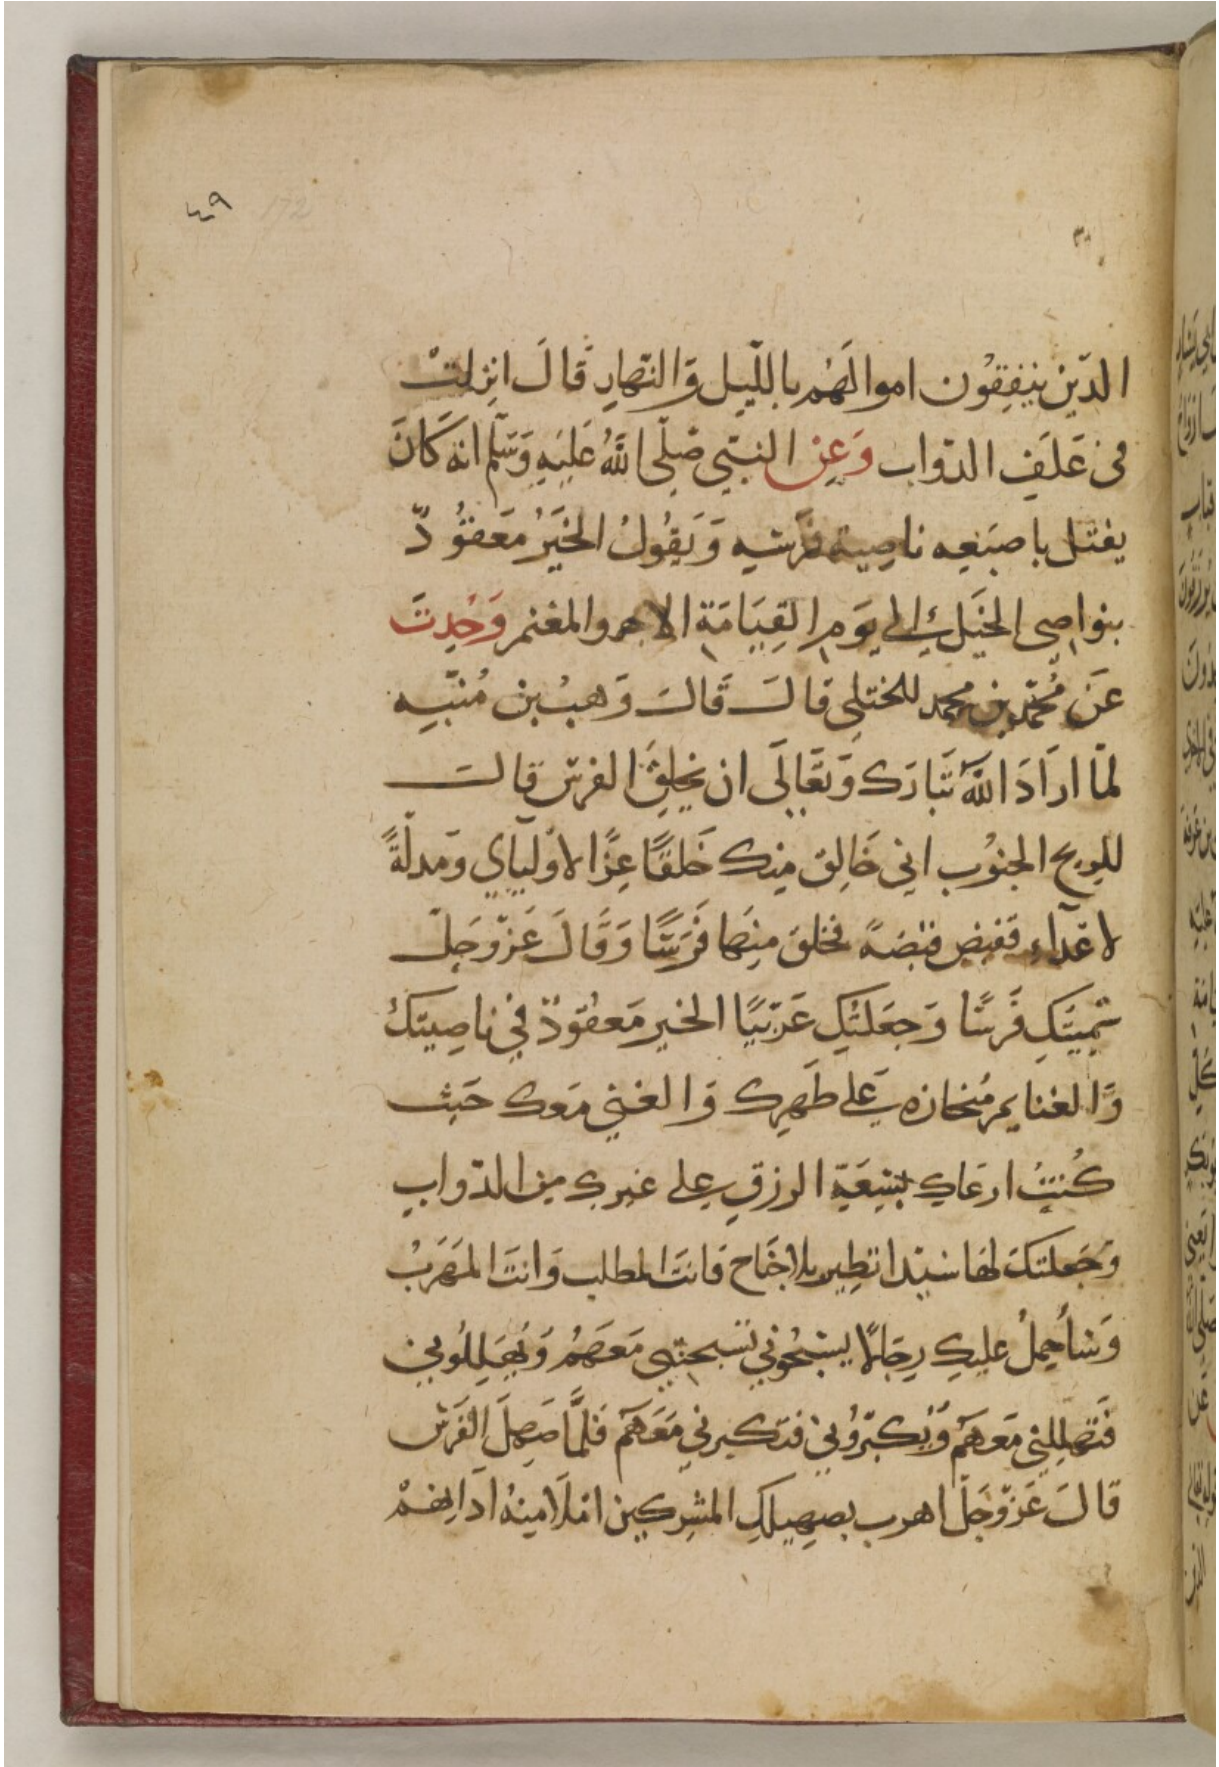 ٤٩
الذين ينفقون اموالهم بالليل والنهار قال انزلت
في علف الدواب وعن النبي صلى الله عليه وسلم انه كان
يفتل باصبعه ناصية فرسه ويقول الخير معقود
بنواصي الخيل الى يوم القيامة الاجر والمغنم وحدث
عن محمد بن محمد الختلي قال قال وهب بن منبه
لما اراد الله تبارك وتعالى ان يخلق الفرس قال
للريح الجنوب اني خالق منك خلقا عزا لاوليآي ومدلة
لاعدآء فقبض قبضة فخلق منها فرسا وقال عز وجل
سميتك فرسا وجعلتك عربيا الخير معقود في ناصيتك
والغنايم منحازه على ظهرك والغنى معك حيث
كنت ارعاك بسعة الرزق على غيرك من الدواب
وجعلتك لها سيدا تطير بلا جناح فانت المطلب وانت المهرب
وسأحمل عليك رجالا يسبحوني تسبحني معهم ويهللوني
فتهللني معهم ويكبروني فتكبرني معهم فلما صهل الفرس
قال عز وجل اهرب بصهيلك المشركين املا منه اداانهم